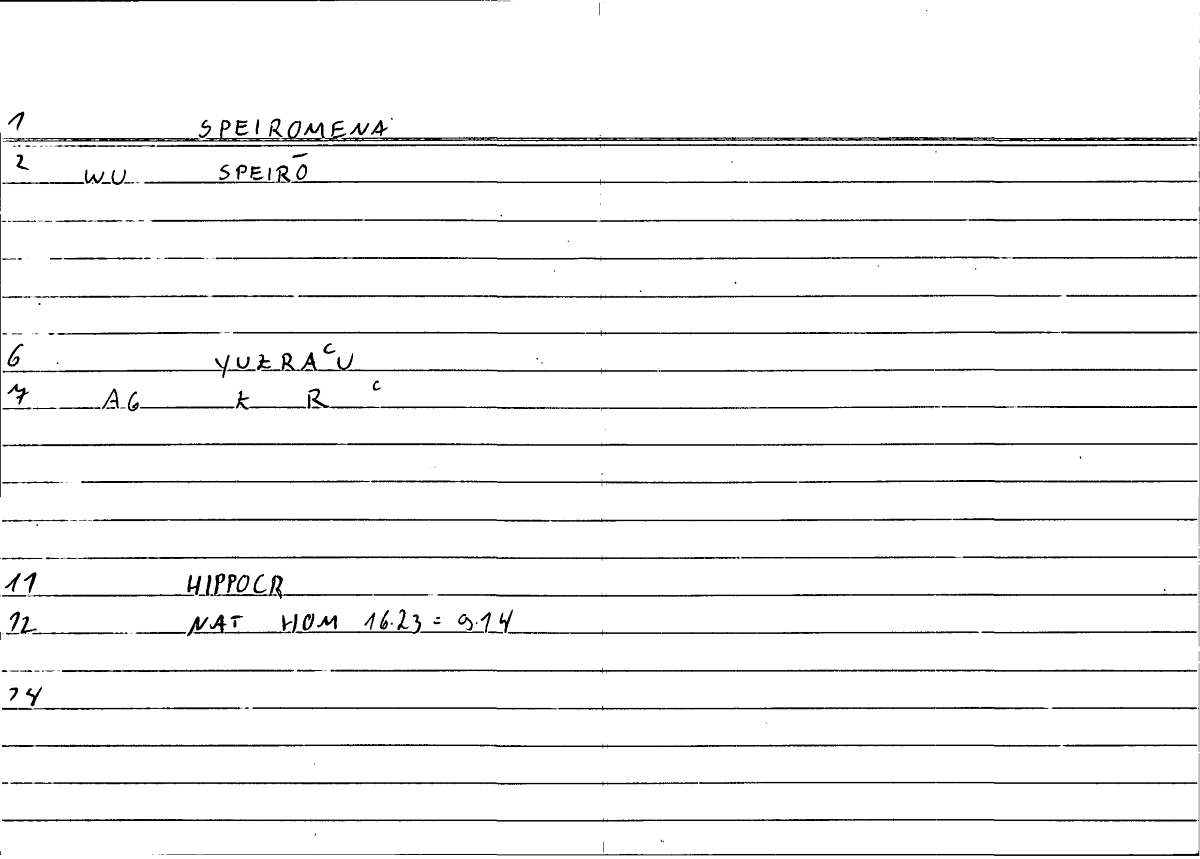 1 SPEIROMENA
2 WU SPEIRŌ
6 YUZRAᶜU
7 AG Z R ᶜ
11 HIPPOCR
12 NAT HOM 16.23 = 9.14
24